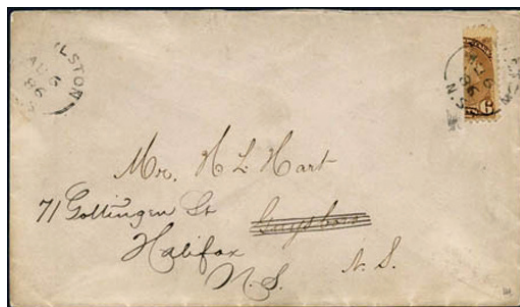 LSTON
AU 6
86
AU 6
86
N.S.
6
Mr. H L Hart
71 Gottingen St Guysboro
Halifax N.S.
N.S.